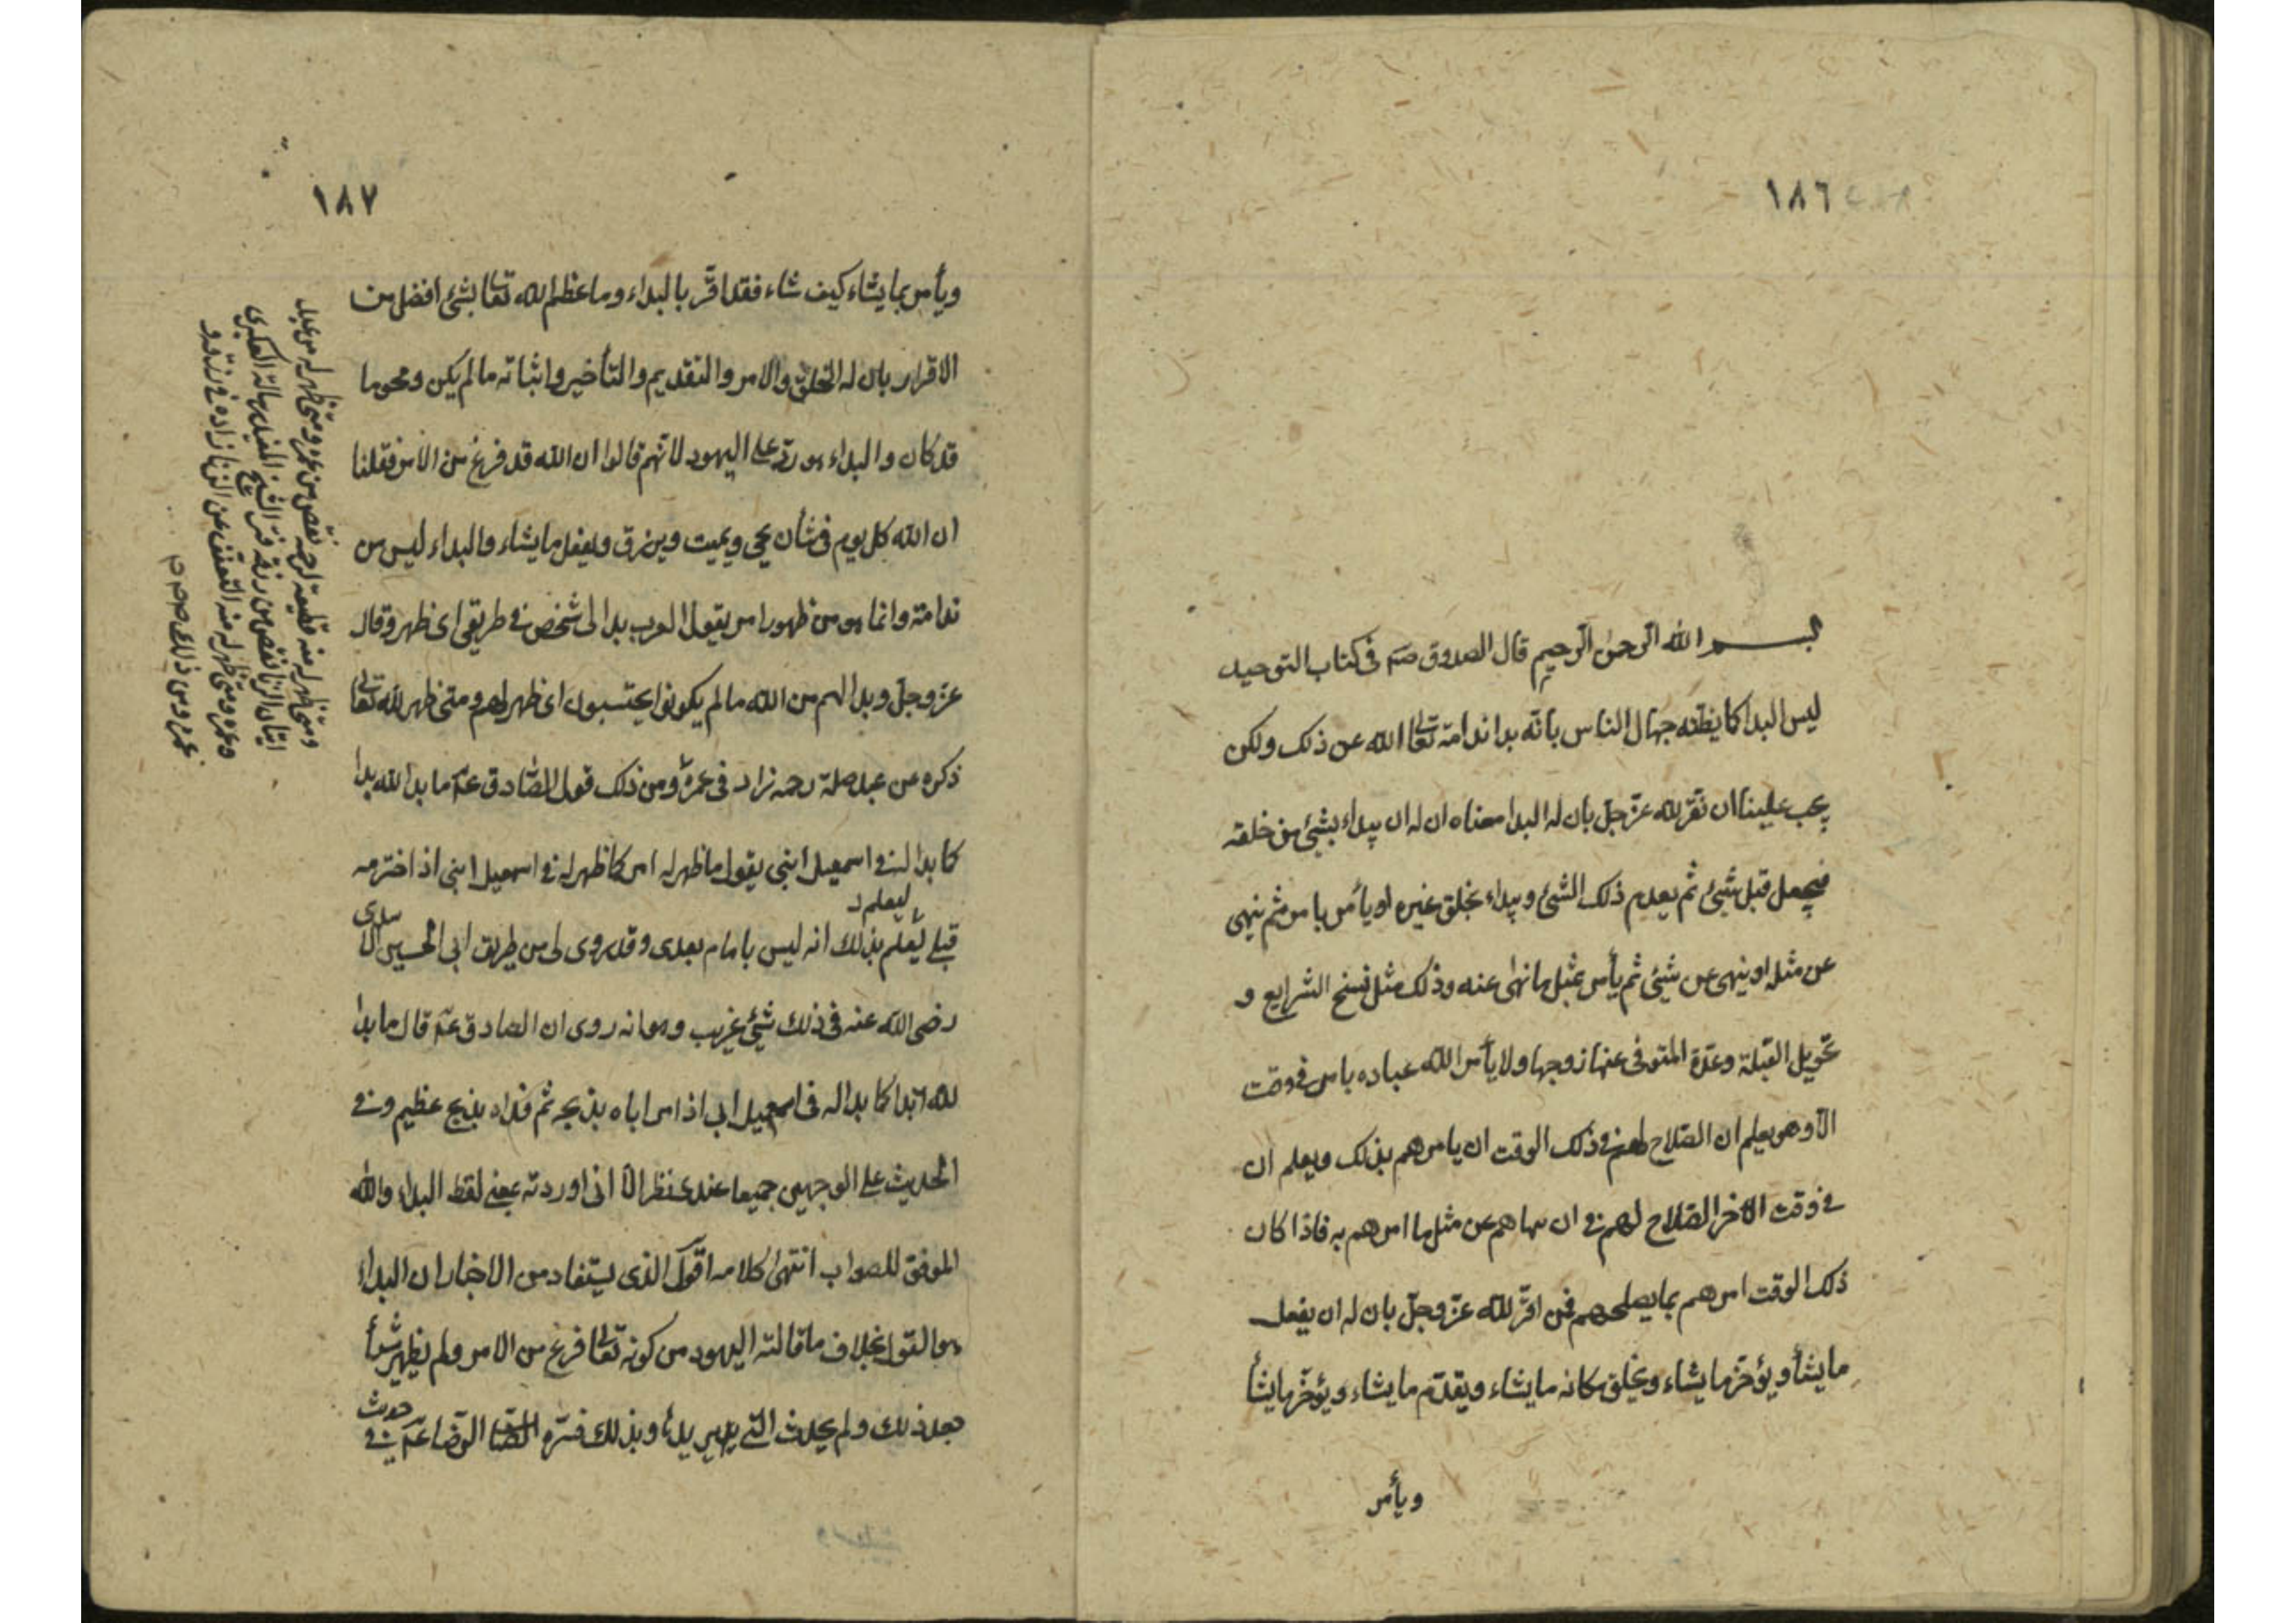 ١٨٦
بسم الله الرحمن الرحيم قال الصدوق في كتاب التوحيد
ليس البدا كما يظنه جهال الناس بانه بدا ندامة تعالى الله عن ذلك ولكن
يجب علينا ان نقر لله عز وجل بان له البدا معناه ان له ان يبداء بشيئ من خلقه
فيجعل قبل شيئ ثم يعدم ذلك الشئ ويبداء بخلق غيره او يأمر بامر ثم ينهى
عن مثله او ينهى عن شيئ ثم يأمر بمثل ما نهى عنه وذلك مثل نسخ الشرايع و
تحويل القبلة وعدة المتوفى عنها زوجها ولا يأمر الله عباده بامر في وقت
الا وهو يعلم ان الصلاح لهم في ذلك الوقت ان يامرهم بذلك ويعلم ان
في وقت الاخر الصلاح لهم في ان ينهاهم عن مثل ما امرهم به فاذا كان
ذلك الوقت امرهم بما يصلحهم فمن اقر لله عز وجل بان له ان يفعل
ما يشأ ويؤخر ما يشاء ويخلق مكانه ما يشاء ويقدم ما يشاء ويؤخر ما يشأ
ويأمر
١٨٧
ويأمر بما يشاء كيف شاء فقد اقر بالبداء وما عظم الله تعالى بشئ افضل من
الاقرار بان له الخلق والامر والتقديم والتأخير واثباته ما لم يكن ومحو ما
قد كان والبداء هو رد على اليهود لانهم قالوا ان الله قد فرغ من الامر فقلنا
ان الله كل يوم في شأن يحيي ويميت ويرزق ويفعل ما يشاء والبداء ليس من
ندامة وانما هو من ظهور امر يقول العرب بدا لي شخص في طريقي اي ظهر وقال
عز وجل وبدا لهم من الله ما لم يكونوا يحتسبون اي ظهر لهم ومتى ظهر لله تعالى
ذكره من عبد صلة رحمه زاد في عمره ومن ذلك قول الصادق ع ما بدا لله بدا
كما بدا له في اسمعيل ابني يقول ما ظهر له امر كما ظهر له في اسمعيل ابني اذ اخترمه
ليعلم
قبلي يعلم بذلك انه ليس بامام بعدي وقد روي لي من طريق ابي الحسين الاسدي
رضي الله عنه في ذلك شيئ غريب وهو انه روى ان الصادق ع قال ما بدا
لله بدا كما بدا له في اسمعيل ابي اذ امر اباه بذبحه ثم فداه بذبح عظيم وفي
الحديث على الوجهين جميعا عندي نظر الا اني اوردته بمعنى لفظ البداء والله
الموفق للصواب انتهى كلامه اقول الذي يستفاد من الاخبار ان البداء
هو القول بخلاف ما قالته اليهود من كونه تعالى فرغ من الامر ولم يظهر شيأ
بعد ذلك ولم يحدث وبذلك فسره الرضا ع في
حديث
ومتى ظهر له منه قطيعة لرحمه نقص من عمره ومتى ظهر له من عبد
اتيان الزنا نقص من رزقه
وعمره ومتى ظهر له منه التعفف عن الزنا زاده في رزقه و
عمره ومن ذلك